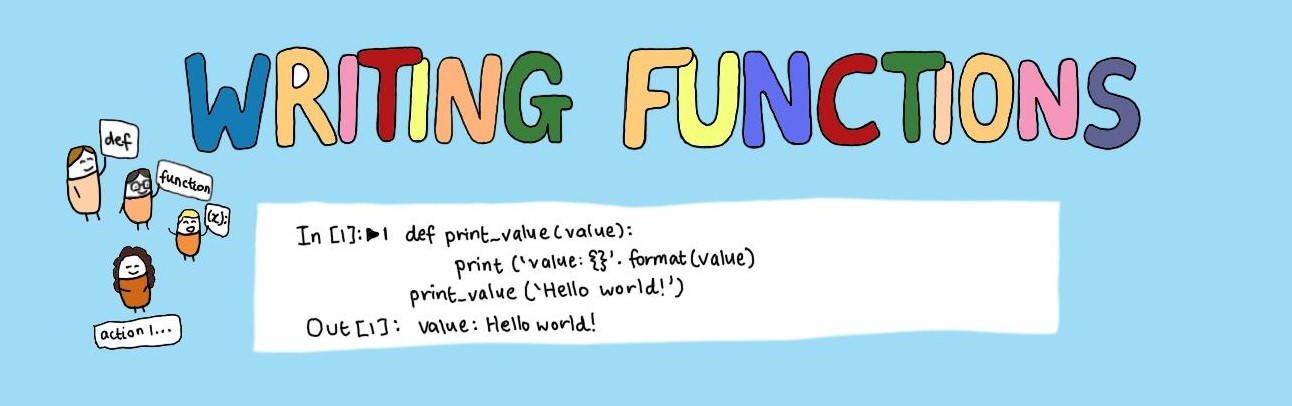 WRITING FUNCTIONS
def
function
(x):
action 1...
In [1]:▶1 def print_value(value):
print ('value: {}'. format(value)
print_value ('Hello world!')
Out[1]: value: Hello world!